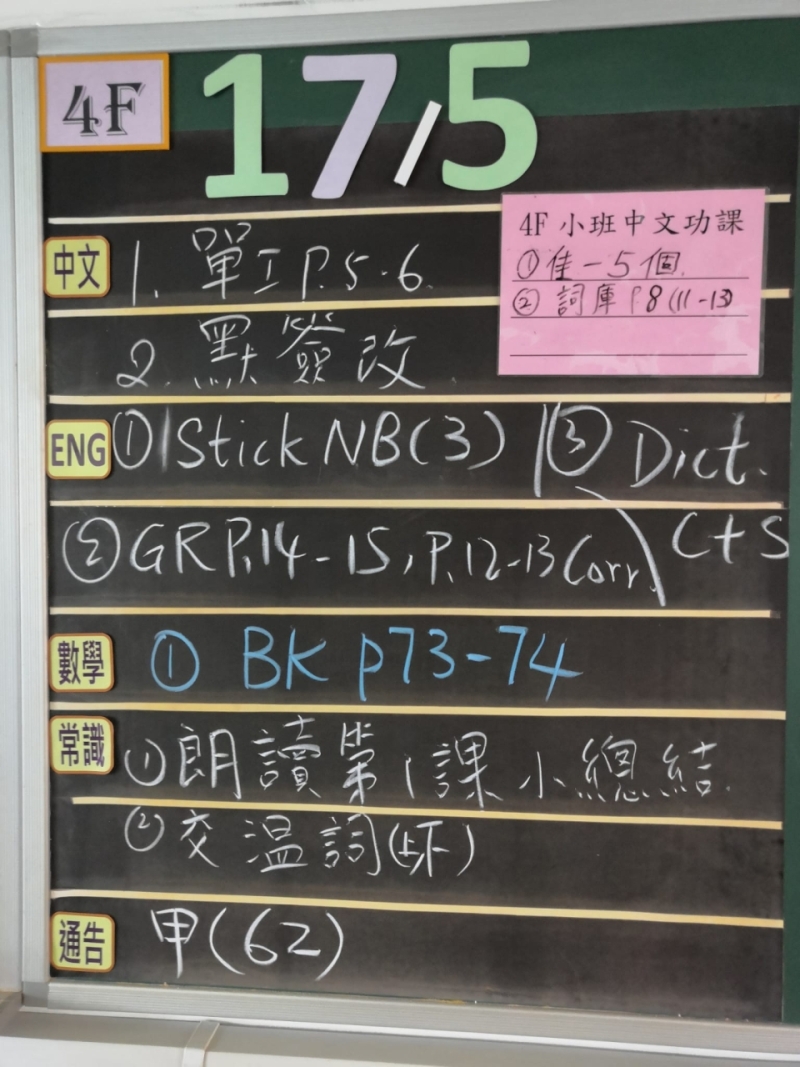 4F
17/5
中文 1. 單工 P.5-6.
2. 默簽改.
4F 小班中文功課
①佳一5個.
② 詞庫 P.8 (11-13)
ENG ① Stick NB(3) ③ Dict.
② GR P.14-15, P.12-13 Corr. C+S
數學 ① BK p73-74
常識 ① 朗讀第1課小總結.
② 交溫詞(上下)
通告 甲(62)